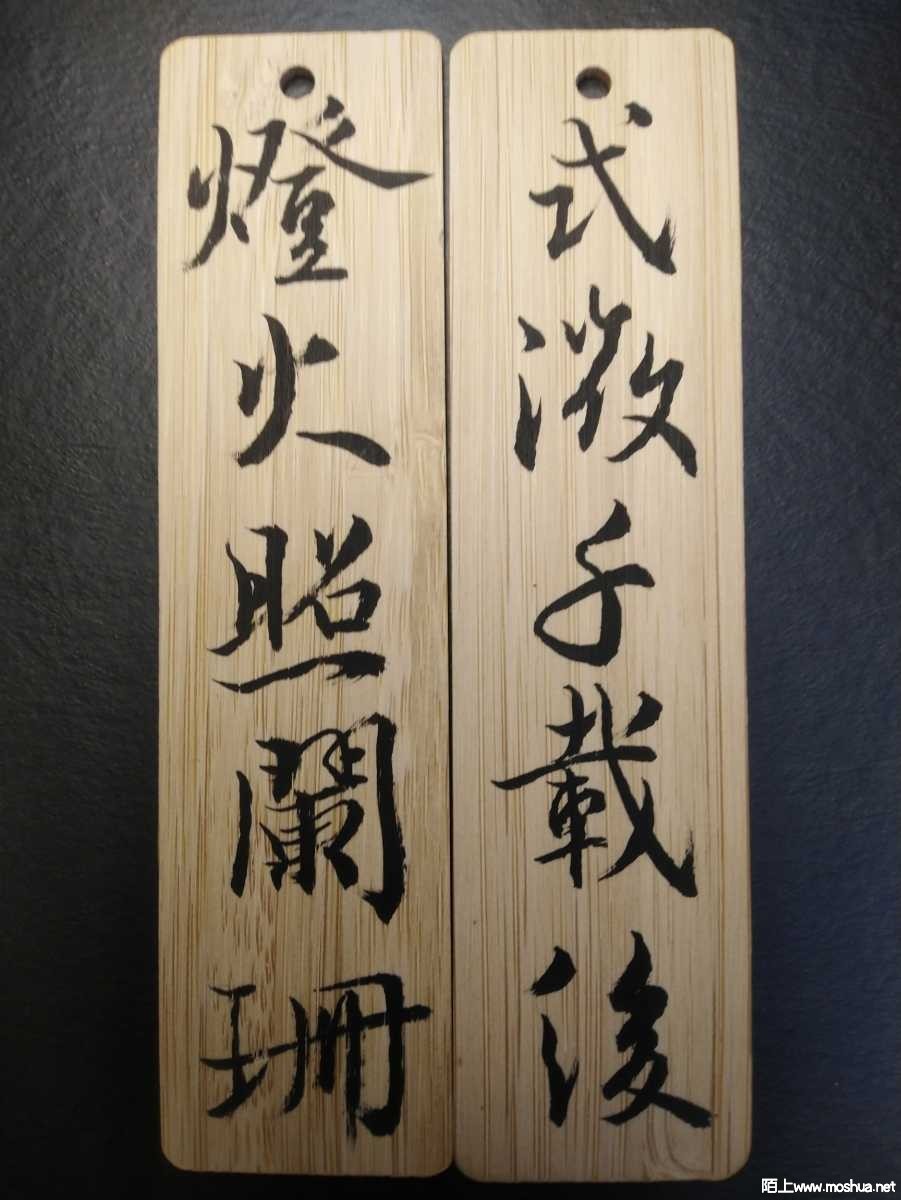 式微千載後
燈火照闌珊
陌上www.moshua.net